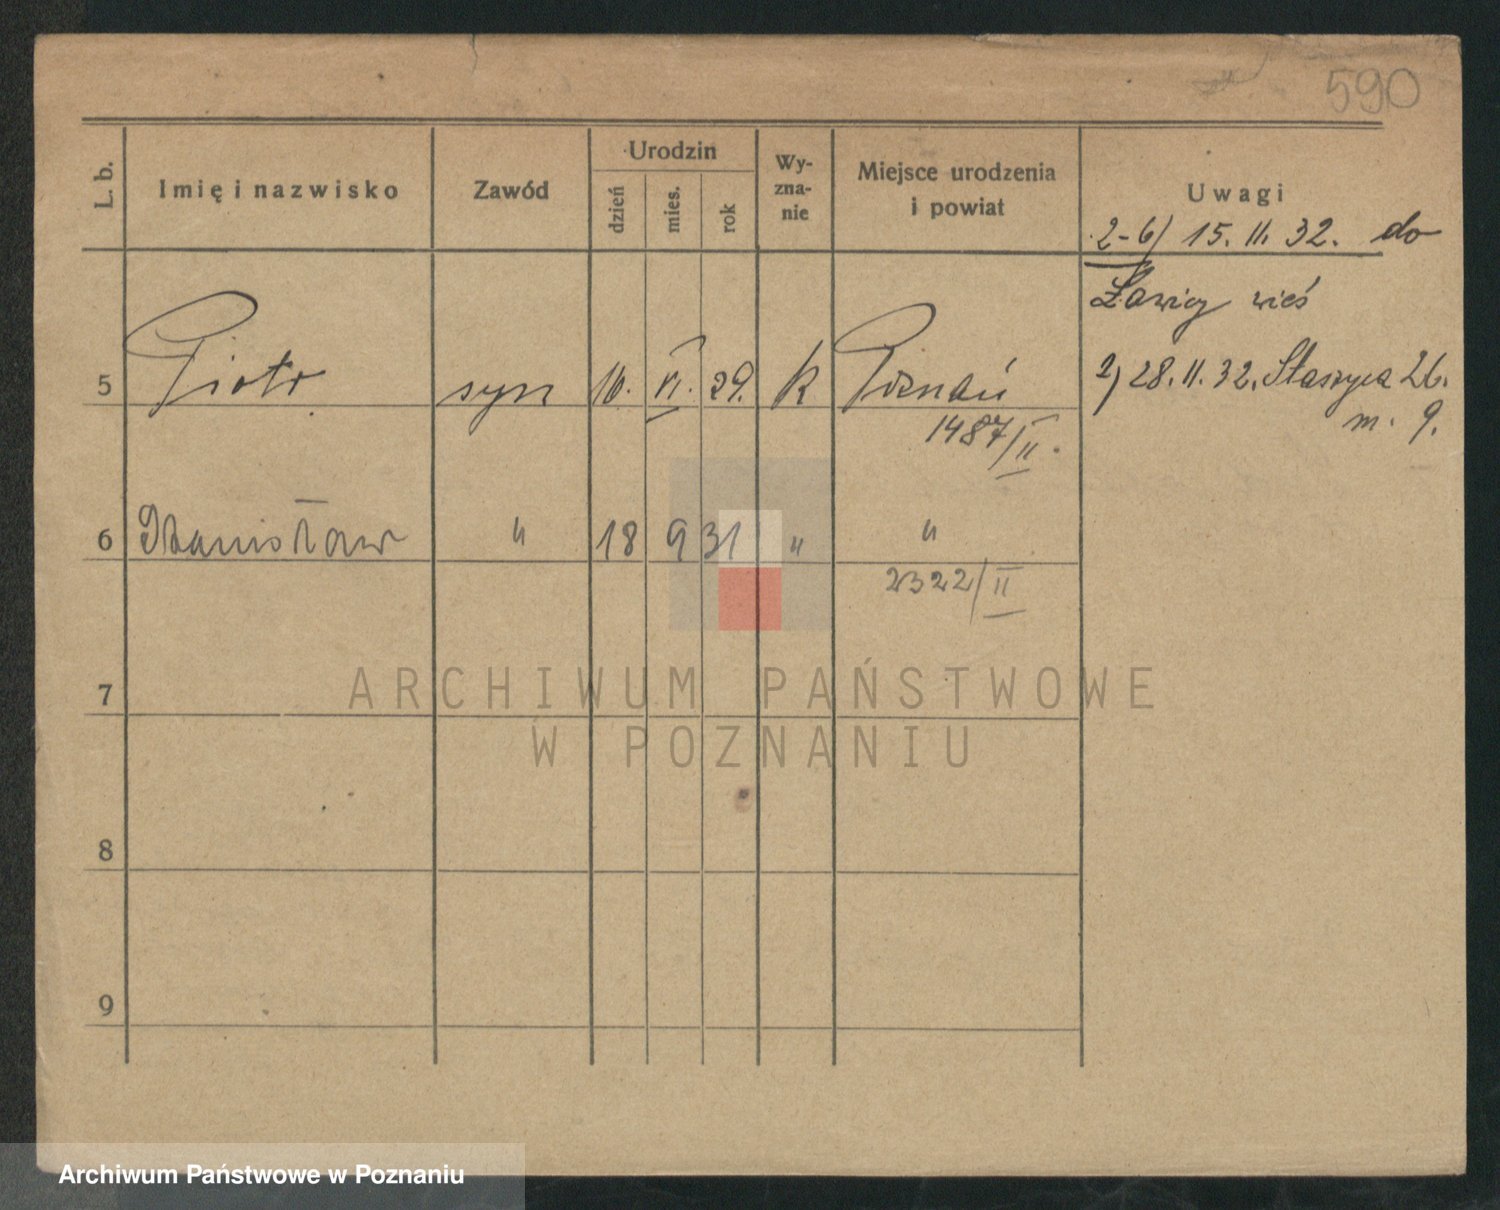 590
L. b.
Imię i nazwisko
Zawód
Urodzin
dzień
mies.
rok
Wy-
zna-
nie
Miejsce urodzenia
i powiat
Uwagi
2-6) 15. II. 32. do
Ławicy wieś
2) 28. II. 32. Staszyca 26.
m. 9.
5 Piotr syn 16. VI. 29. k Poznań
1487/II.
6 Stanisław " 18 9 31 " "
2322/II
7
8
9
ARCHIWUM PAŃSTWOWE
W POZNANIU
Archiwum Państwowe w Poznaniu